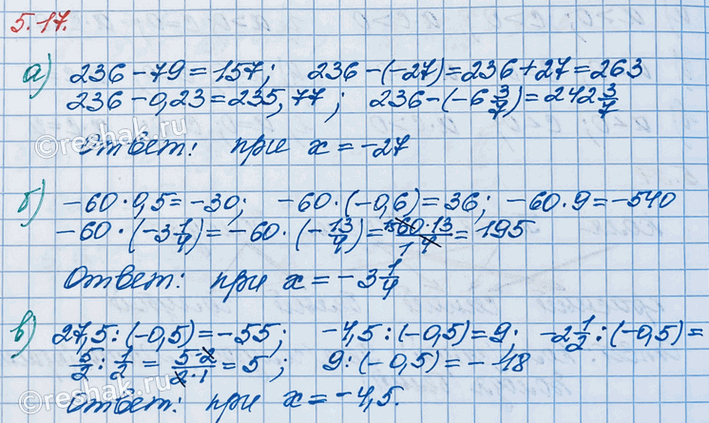 5.17.
а) 236 - 79 = 157; 236 - (-27) = 236 + 27 = 263
236 - 0,23 = 235,77; 236 - (-6 3/7) = 242 3/7
Ответ: при x = -27
б) -60 · 0,5 = -30; -60 · (-0,6) = 36; -60 · 9 = -540
-60 · (-3 1/4) = -60 · (-13/4) = 15 60·13/1 4 = 195
Ответ: при x = -3 1/4
в) 27,5 : (-0,5) = -55; -4,5 : (-0,5) = 9; -2 1/2 : (-0,5) =
5/2 : 1/2 = 5·2/2·1 = 5; 9 : (-0,5) = -18
Ответ: при x = -4,5.
©reshak.ru
©reshak.ru